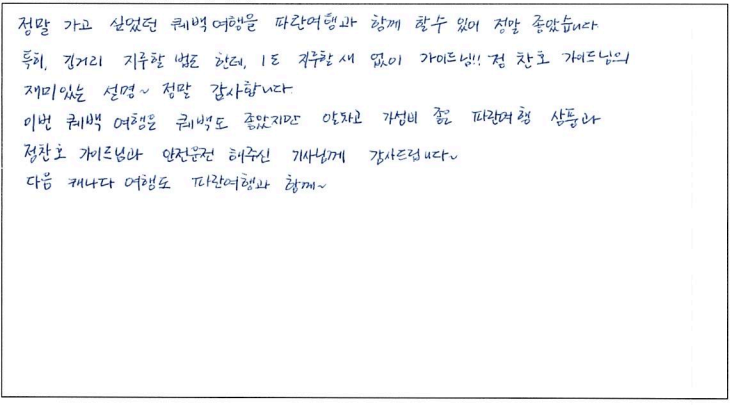 정말 가고 싶었던 퀘백여행을 파란여행과 함께 할수 있어 정말 좋았습니다
특히, 긴거리 지루할 법도 한데, 1도 지루할 새 없이 가이드님!! 정찬호 가이드님의
재미있는 설명~ 정말 감사합니다
이번 퀘백 여행은 퀘백도 좋았지만 알차고 가성비 좋은 파란여행 상품과
정찬호 가이드님과 안전운전 해주신 기사님께 감사드립니다~
다음 캐나다 여행도 파란여행과 함께~